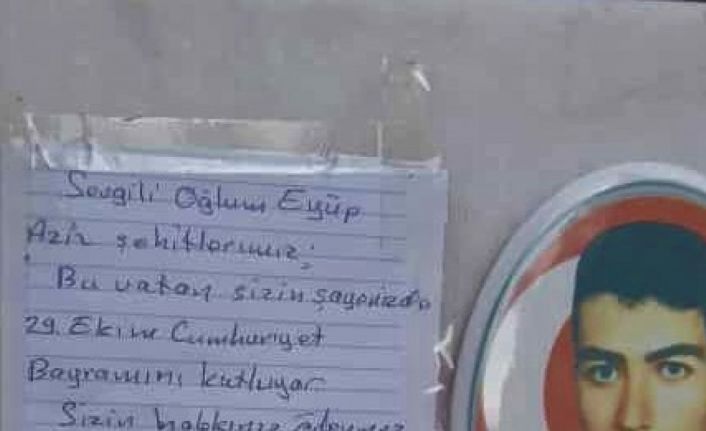 Sevgili Oğlum Eyüp
Aziz şehitlerimiz;
Bu vatan sizin sayenizde
29. Ekim Cumhuriyet
Bayramını kutluyor
Sizin hakkınız ödenmez